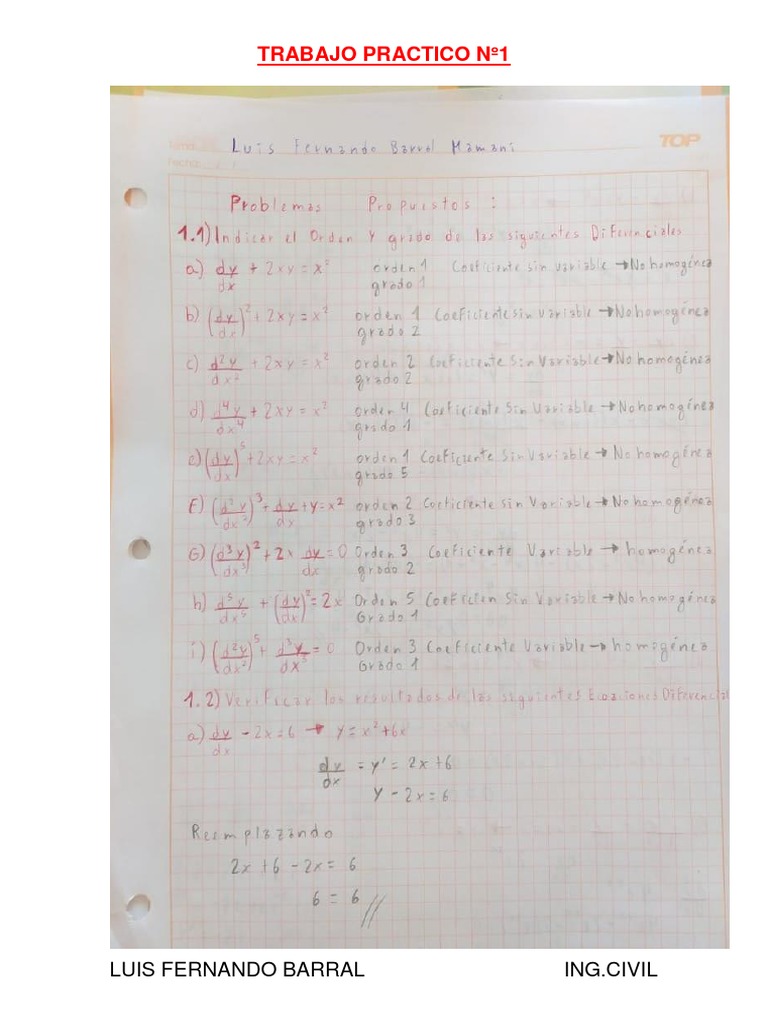 TRABAJO PRACTICO Nº1
Luis Fernando Barral Mamani
TOP
Fecha:
Problemas Propuestos :
1.1) Indicar el Orden Y grado de las siguientes Diferenciales
a) dy/dx + 2xy = x² orden 1 Coeficiente sin variable → No homogénea
grado 1
b) (dy/dx)² + 2xy = x² orden 1 Coeficiente sin variable → No homogénea
grado 2
c) d²y/dx² + 2xy = x² orden 2 Coeficiente Sin Variable → No homogénea
grado 2
d) d⁴y/dx⁴ + 2xy = x² orden 4 Coeficiente Sin Variable → No homogénea
grado 1
e) (dy/dx)⁵ + 2xy = x² orden 1 Coeficiente Sin Variable → No homogénea
grado 5
F) (d²y/dx²)³ + dy/dx + y = x² orden 2 Coeficiente sin Variable → No homogénea
grado 3
G) (d³y/dx³)² + 2x dy/dx = 0 Orden 3 Coeficiente Variable → homogénea
grado 2
h) d⁵y/dx⁵ + (dy/dx)² = 2x Orden 5 Coeficien Sin Variable → No homogénea
Grado 1
i) (d²y/dx²)⁵ + d³y/dx³ = 0 Orden 3 Coeficiente Variable → homogénea
Grado 1
1.2) Verificar los resultados de las siguientes Ecuaciones Diferencial
a) dy/dx - 2x = 6 → y = x² + 6x
dy/dx = y' = 2x + 6
y - 2x = 6
Reemplazando
2x + 6 - 2x = 6
6 = 6 //
LUIS FERNANDO BARRAL ING.CIVIL